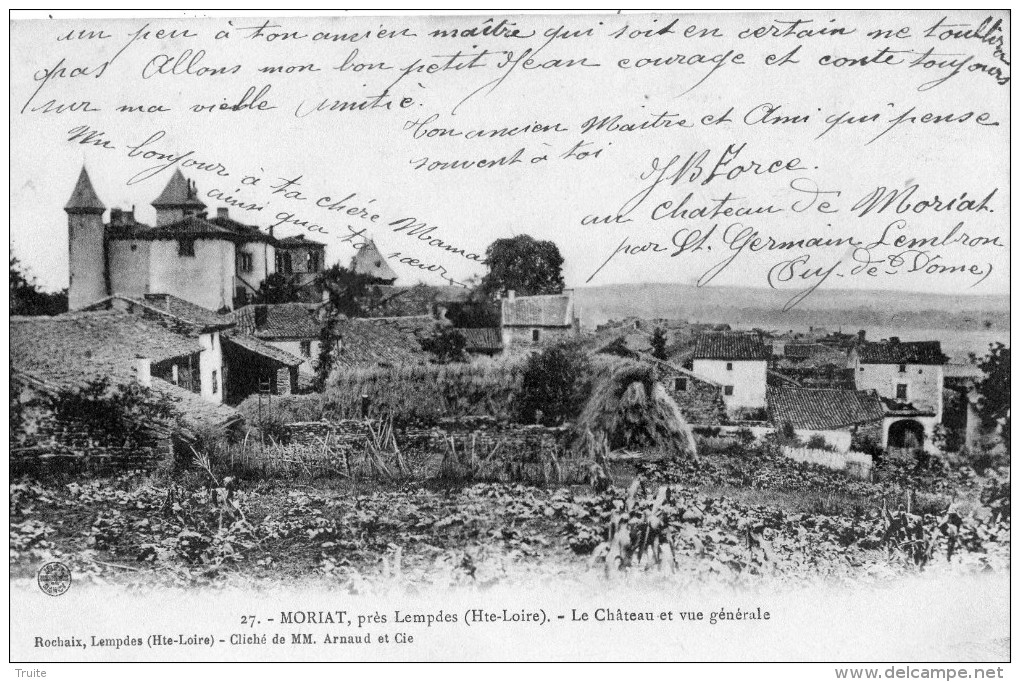 un peu à ton ancien maître qui soit en certain ne t'oubliera
pas Allons mon bon petit Jean courage et conte toujours
sur ma vieille Amitié.
Ton ancien Maitre et Ami qui pense
souvent à toi
Mn bonjour à ta chére Maman
ainsi qua ta sœur
JB Force.
au Chateau de Moriat.
par St. Germain Lembron
(Puy-de-Dome)
27. - MORIAT, près Lempdes (Hte-Loire). - Le Château et vue générale
Rochaix, Lempdes (Hte-Loire) - Cliché de MM. Arnaud et Cie
Truite
www.delcampe.net